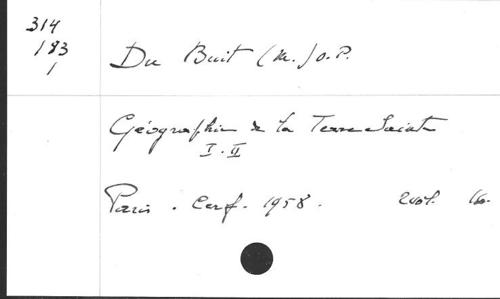 314
183
1
Du Buit (M.) O.P.
Géographie de la Terre Sainte
I. II
Paris. Cerf. 1958. 2 vol. 16.